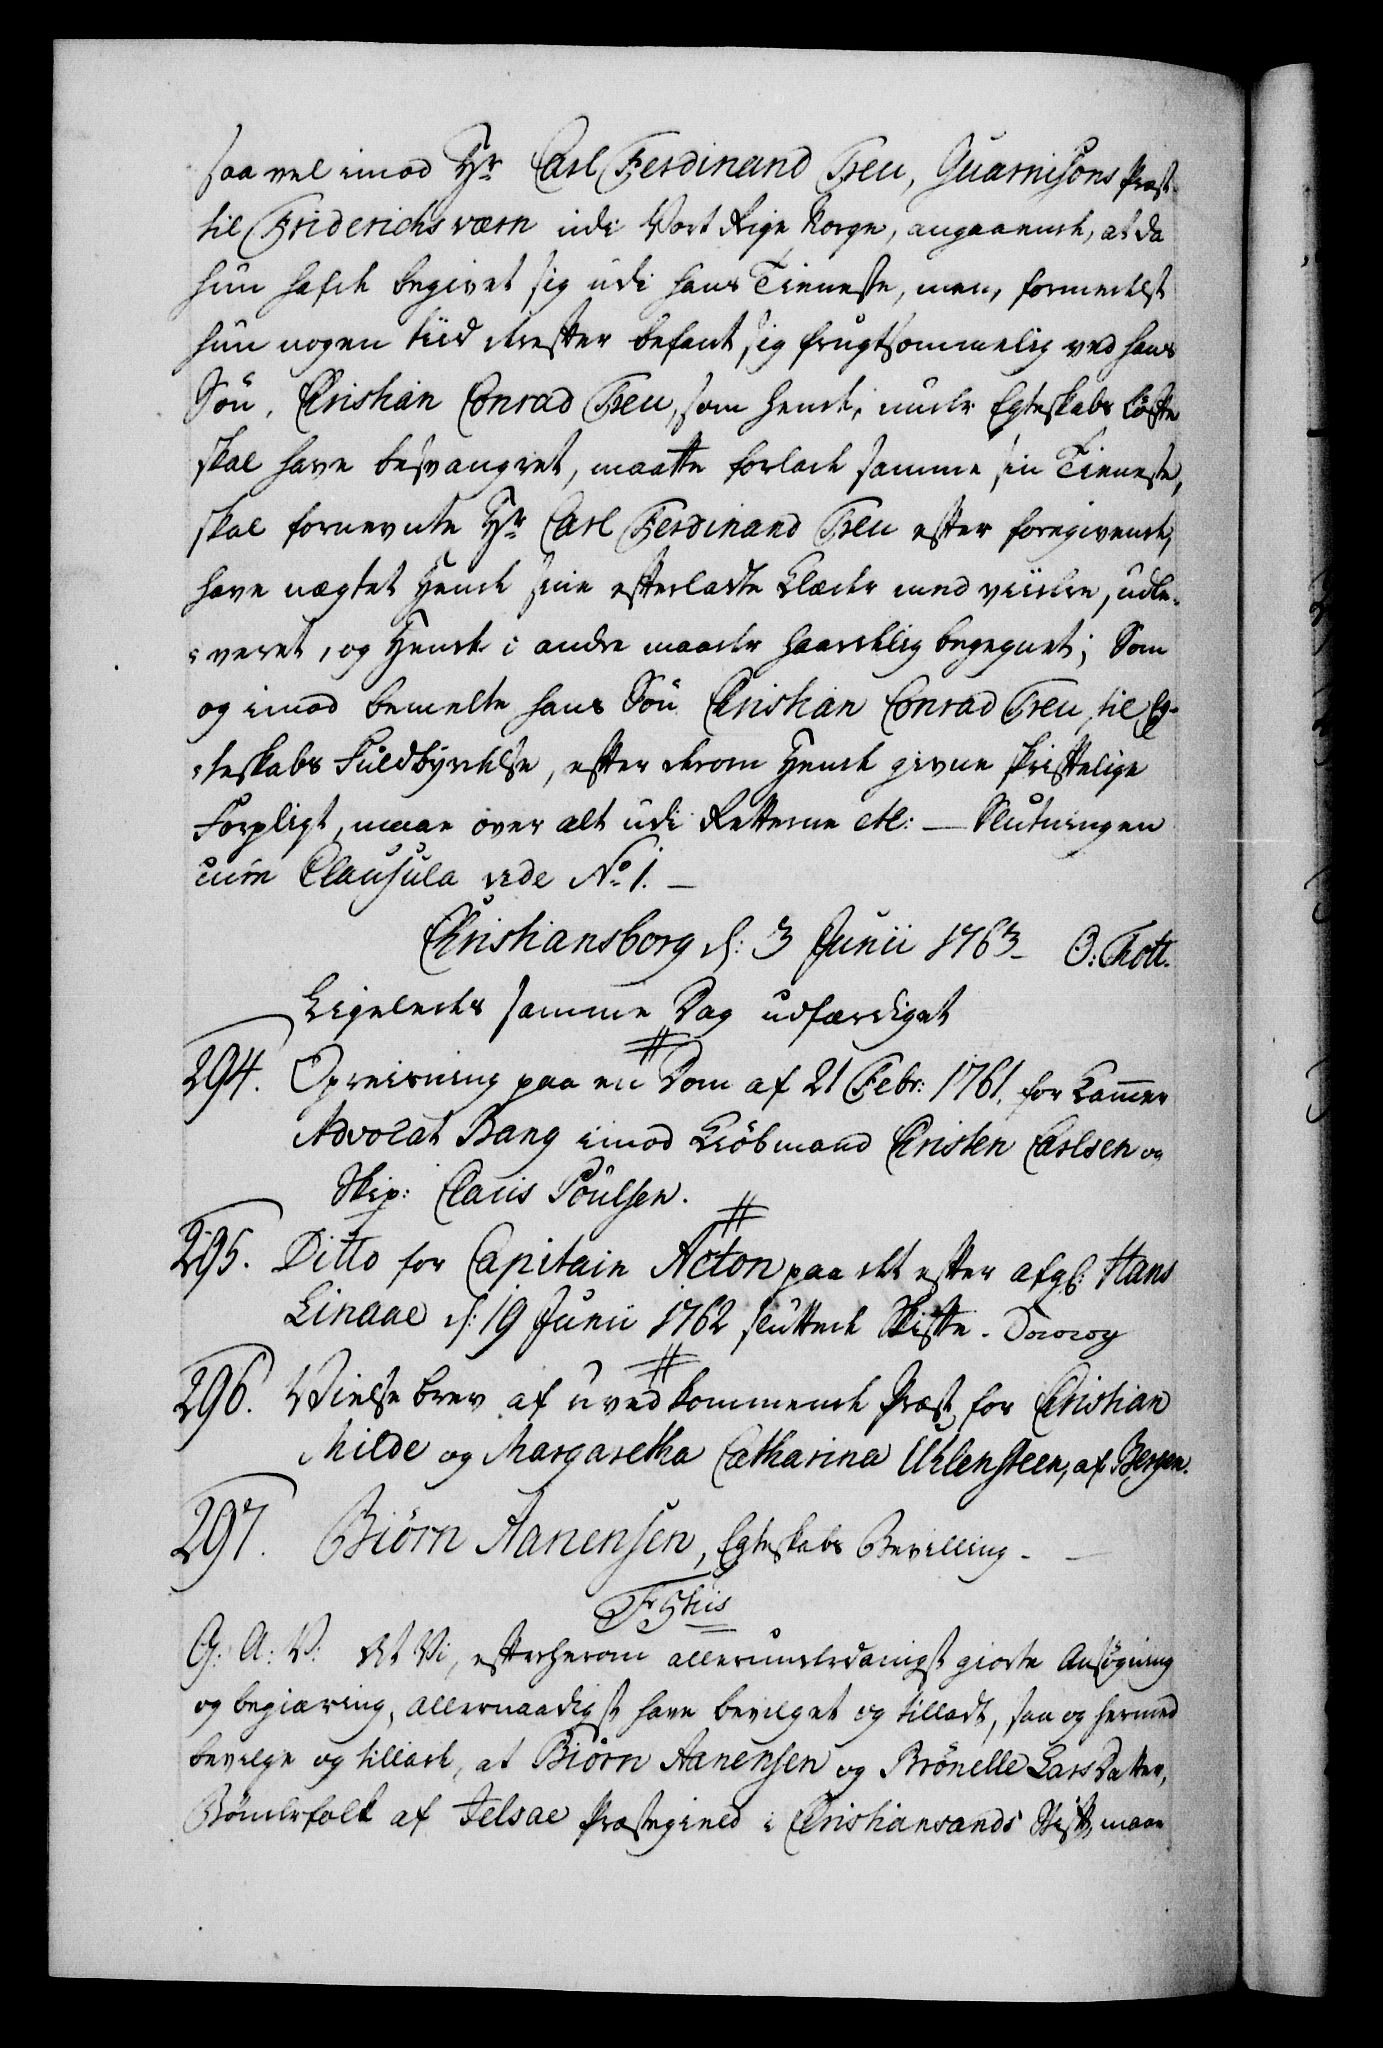 saa vel imod Hr Carl Ferdinand Treu, Guarnisons Præst
til Friderichsværn udi Vort Rige Norge, angaaende, at da
hun hafde begivet sig udi hans Tieneste, men, formedelst
hun nogen tiid derefter befant sig frugtsommelig ved hans
Søn, Christian Conrad Treu, som hende, under Egteskabs Løfte
skal have besvangret, maatte forlade samme sin Tieneste,
skal fornevnte Hr Carl Ferdinand Treu efter foregivende,
have nægtet Hende sine efterladte Klæder med viidre, udle-
-veret, og Hende i andre maader haardelig begegnet; Som
og imod bemelte hans Søn Christian Conrad Treu, til Eg-
-teskabs Fuldbyrdelse, efter derom Hende givne skriftelige
Forpligt, maae over alt udi Retterne etc: — Slutningen
cum Clausula vide No 1. —
Christiansborg d: 3 Junii 1763 - O: Thott.
Ligeledes samme Dag udfærdiget
294. Opreisning paa en Dom af 21 Febr: 1761. for Cammer
Advocat Bang imod Kiøbmand Christen Carlsen og
Skip: Claus Poulsen.
295. Ditto for Capitain Acton paa det efter afg: Hans
Linaae d: 19 Junii 1762 sluttede Skifte.
296. Vielse brev af uvedkommende Præst for Christian
Milde og Margaretha Catharina Uhlensteen, af Bergen.
297. Biørn Aanensen, Egteskabs Bevilling - —
Fr 5tiis
G: A: V: At Vi, efter herom allerunderdanigst giorte Ansøgning
og begiæring, allernaadigst have bevilget og tilladt, saa og hermed
bevilge og tillade, at Biørn Aanensen og Brønelle Lars Datter,
Bønderfolk af Jelsae Præstegield i Christiansands Stift, maae